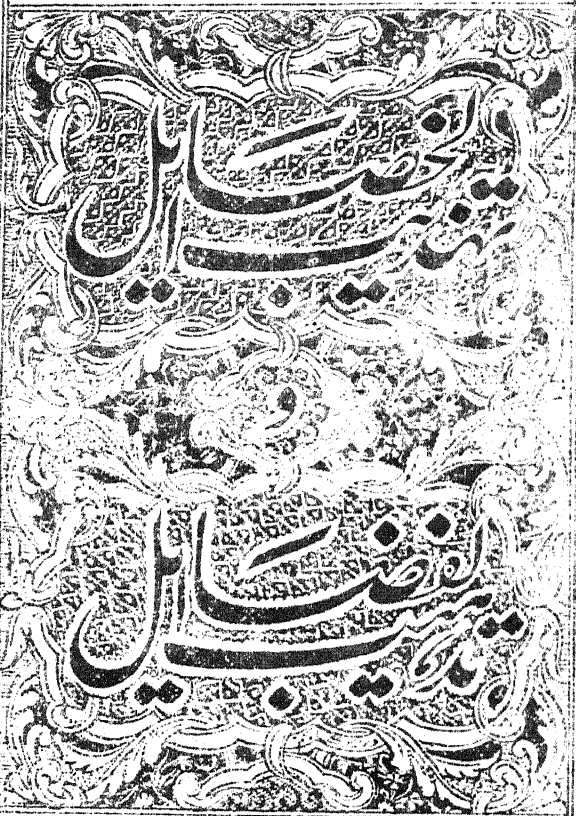 تهذیب الخصایل
و
تذهیب الفضایل